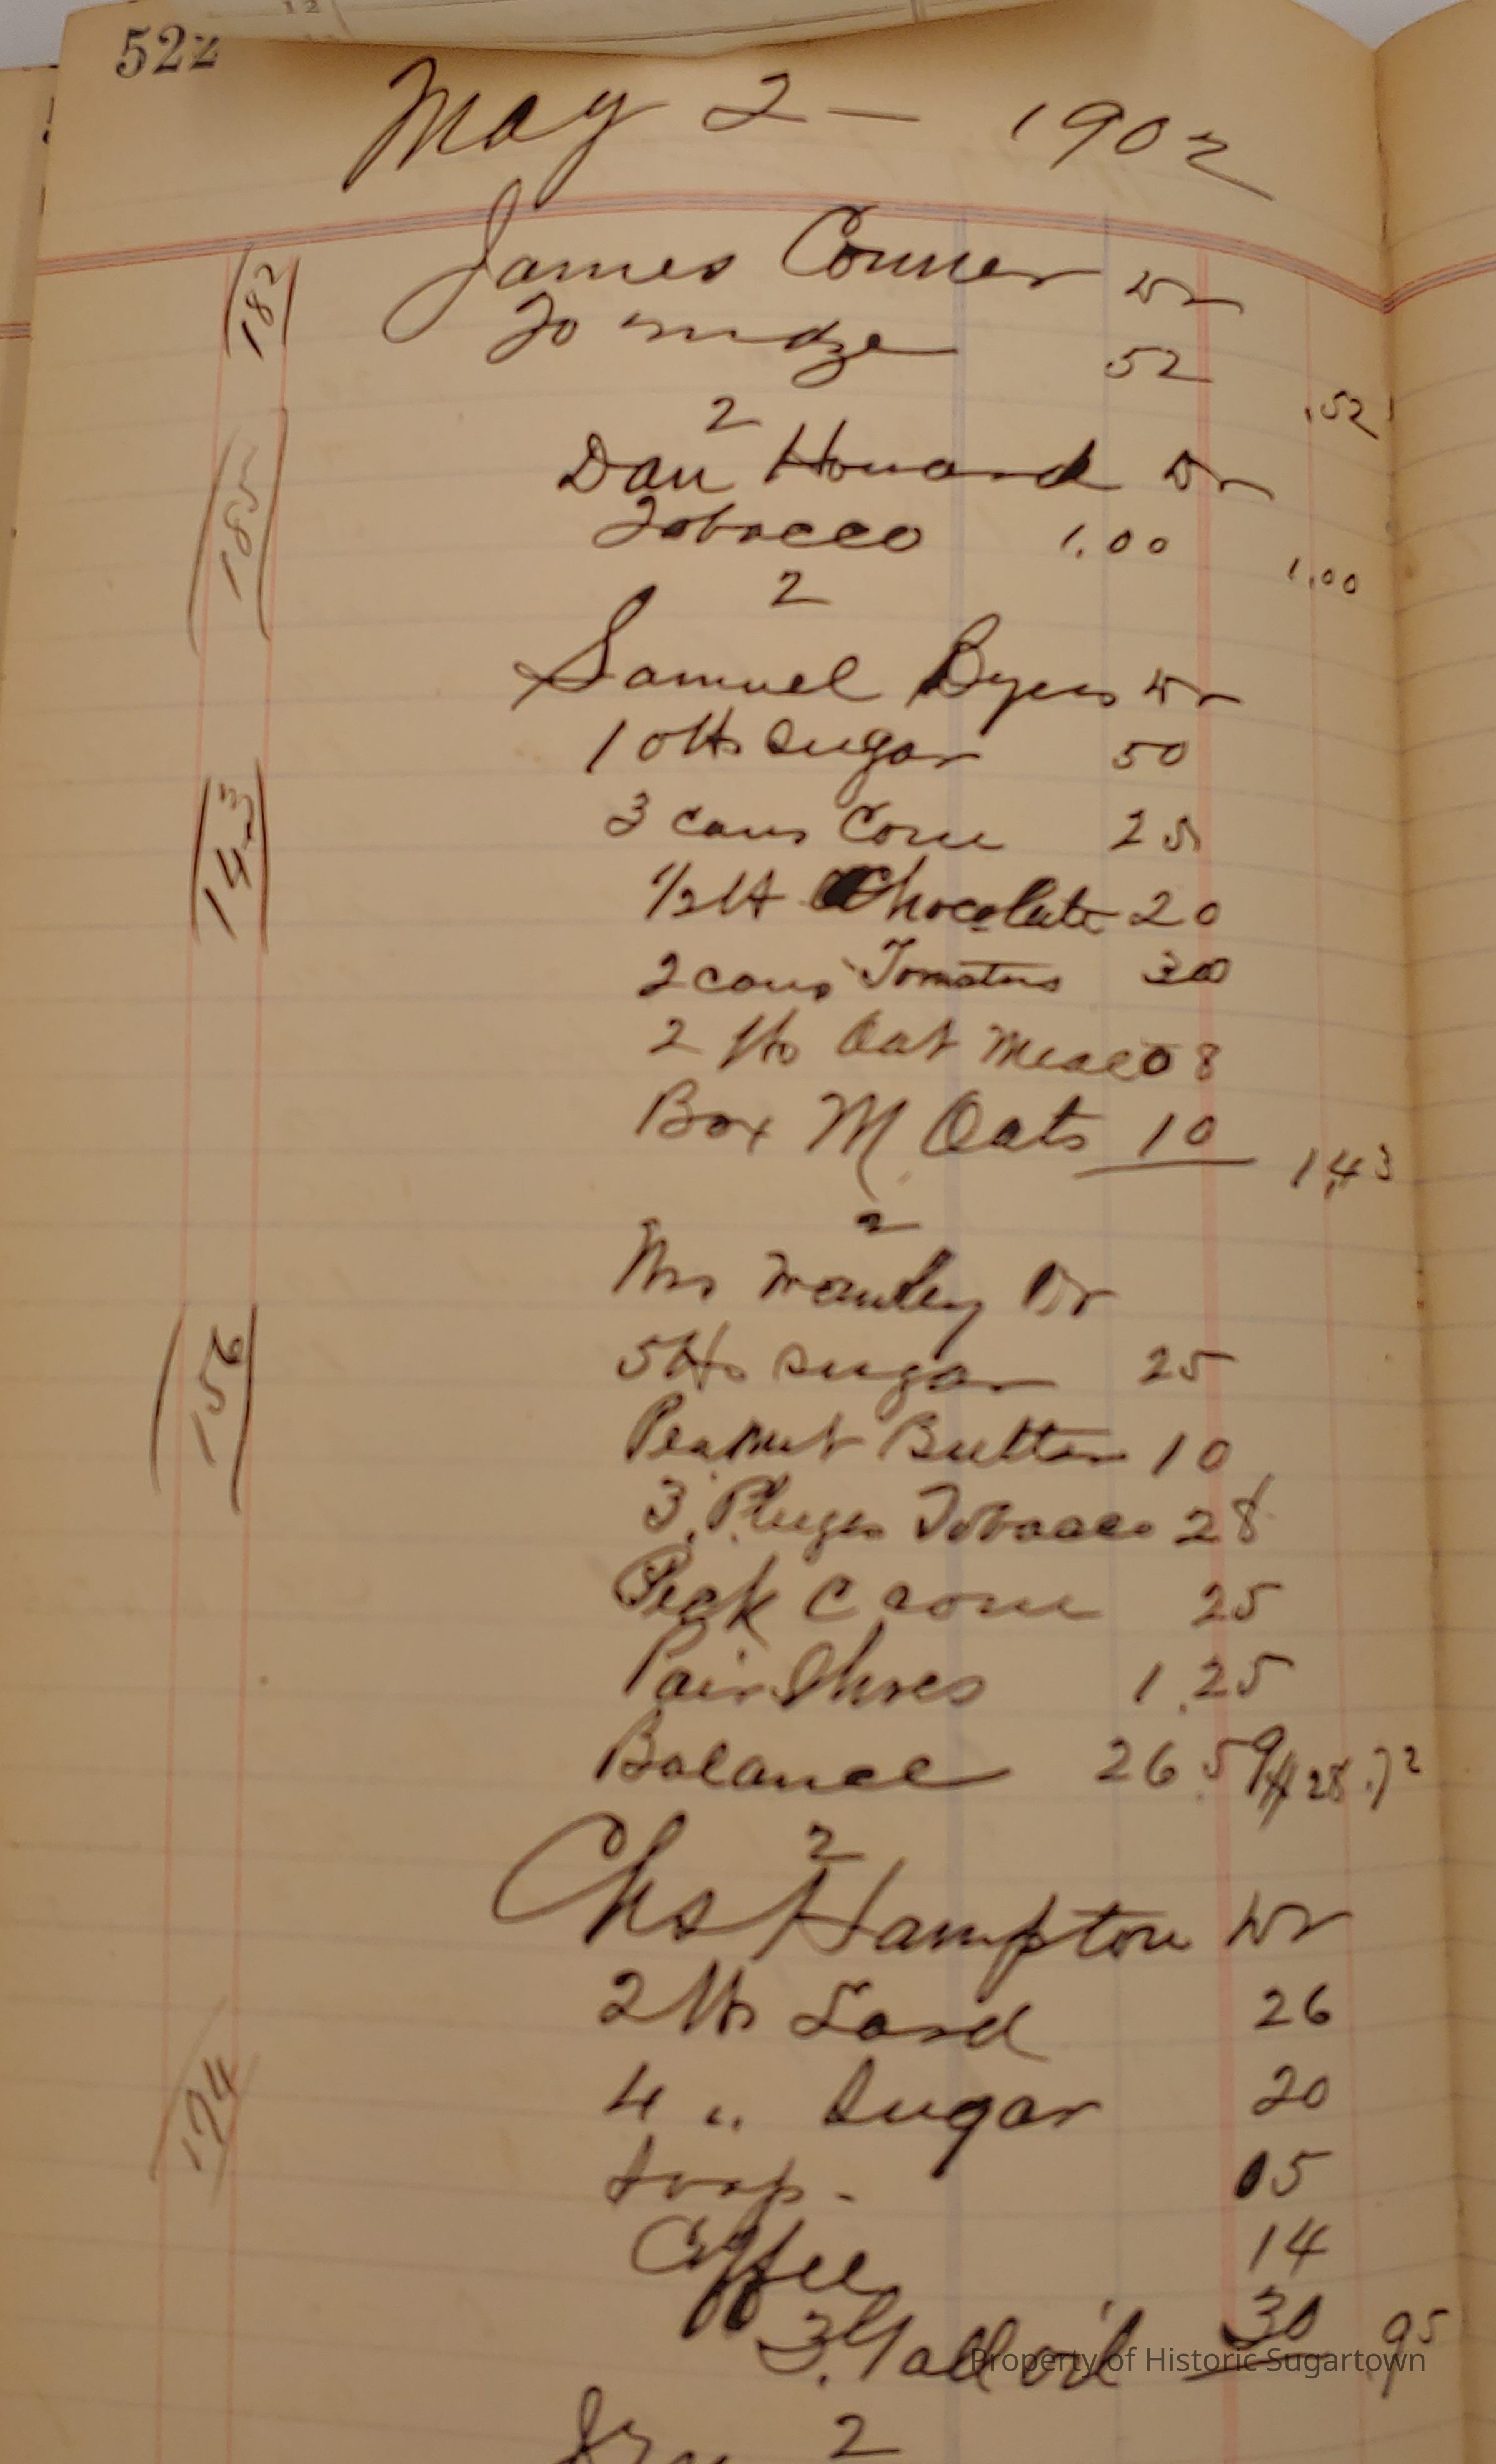 522
May 2 — 1902
182 James Conner Dr
To mdze 52 .52
2
185 Dan Howard Dr
Tobacco 1.00 1.00
2
Samuel Byers Dr
10 lbs Sugar 50
3 cans Corn 25
143 1/2 lb Chocolate 20
2 cans Tomatoes 30
2 lbs Oat Meal 08
Box M Oats 10 1.43
2
Mrs Manley Dr
156 5 lbs sugar 25
Peanut Butter 10
3 Pluges Tobacco 28
Peck C corn 25
Pair Shoes 1.25
Balance 26.59 28.72
2
Chs Hampton Dr
2 lbs Lard 26
174 4 " Sugar 20
Soap - 05
Coffee 14
3 Gall oil 30 .95
2
Property of Historic Sugartown